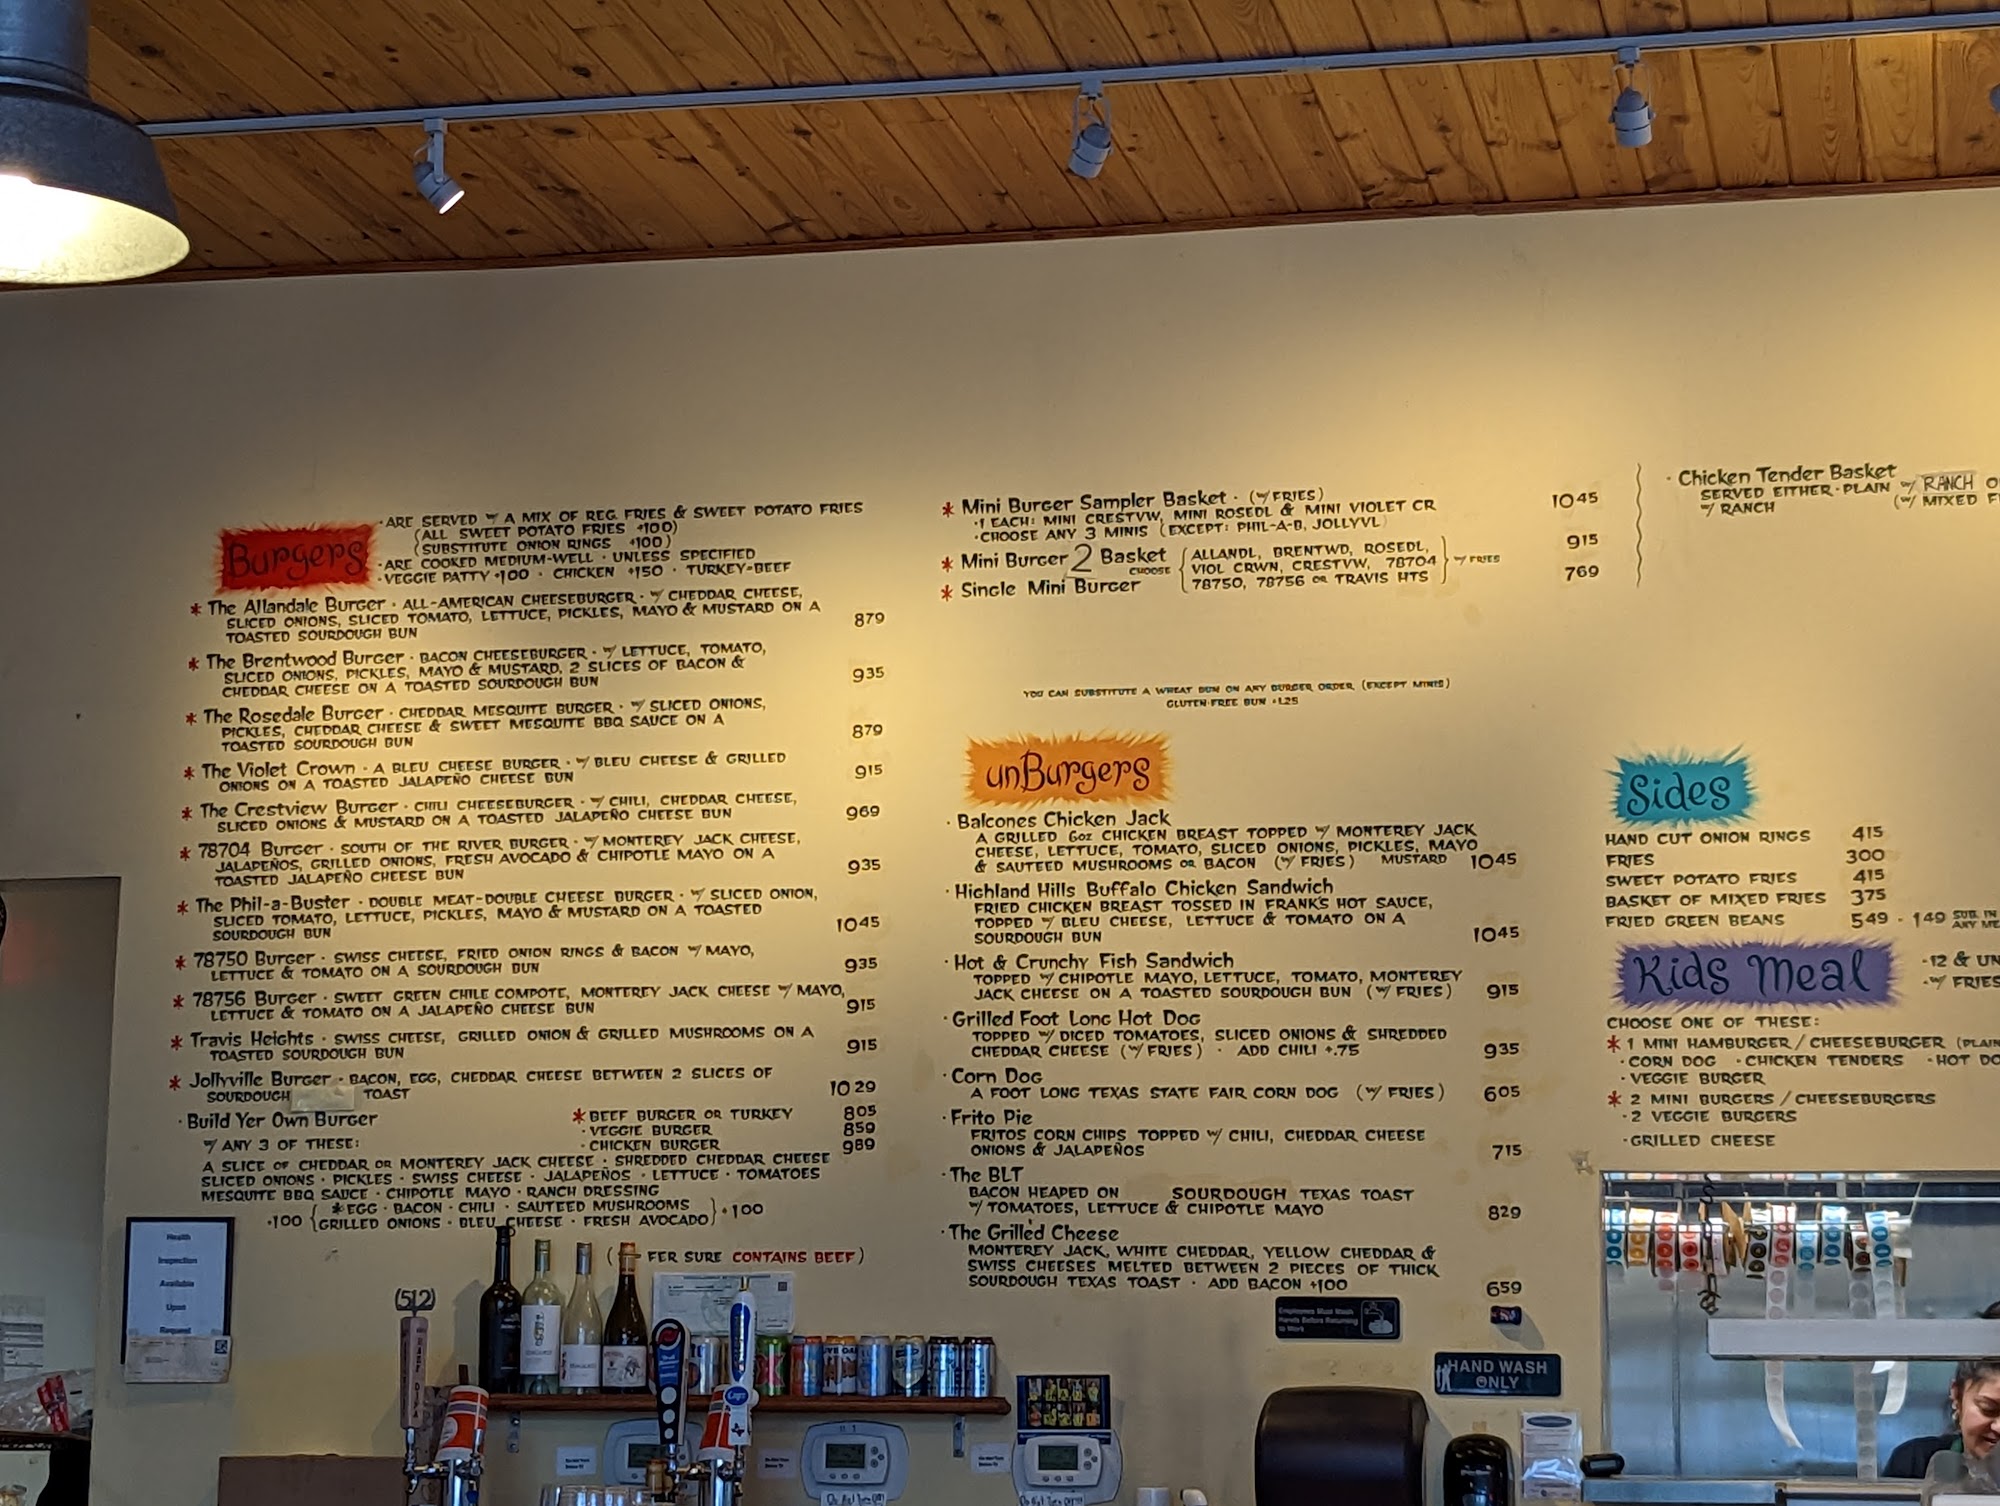 Burgers
· ARE SERVED w/ A MIX OF REG. FRIES & SWEET POTATO FRIES
(ALL SWEET POTATO FRIES +100)
(SUBSTITUTE ONION RINGS +100)
· ARE COOKED MEDIUM-WELL · UNLESS SPECIFIED
· VEGGIE PATTY +100 · CHICKEN +150 · TURKEY=BEEF
* The Allandale Burger · ALL-AMERICAN CHEESEBURGER · w/ CHEDDAR CHEESE,
SLICED ONIONS, SLICED TOMATO, LETTUCE, PICKLES, MAYO & MUSTARD ON A
TOASTED SOURDOUGH BUN 879
* The Brentwood Burger · BACON CHEESEBURGER · w/ LETTUCE, TOMATO,
SLICED ONIONS, PICKLES, MAYO & MUSTARD, 2 SLICES OF BACON &
CHEDDAR CHEESE ON A TOASTED SOURDOUGH BUN 935
* The Rosedale Burger · CHEDDAR MESQUITE BURGER · w/ SLICED ONIONS,
PICKLES, CHEDDAR CHEESE & SWEET MESQUITE BBQ SAUCE ON A
TOASTED SOURDOUGH BUN 879
* The Violet Crown · A BLEU CHEESE BURGER · w/ BLEU CHEESE & GRILLED
ONIONS ON A TOASTED JALAPEÑO CHEESE BUN 915
* The Crestview Burger · CHILI CHEESEBURGER · w/ CHILI, CHEDDAR CHEESE,
SLICED ONIONS & MUSTARD ON A TOASTED JALAPEÑO CHEESE BUN 969
* 78704 Burger · SOUTH OF THE RIVER BURGER · w/ MONTEREY JACK CHEESE,
JALAPEÑOS, GRILLED ONIONS, FRESH AVOCADO & CHIPOTLE MAYO ON A
TOASTED JALAPEÑO CHEESE BUN 935
* The Phil-a-Buster · DOUBLE MEAT-DOUBLE CHEESE BURGER · w/ SLICED ONION,
SLICED TOMATO, LETTUCE, PICKLES, MAYO & MUSTARD ON A TOASTED
SOURDOUGH BUN 1045
* 78750 Burger · SWISS CHEESE, FRIED ONION RINGS & BACON w/ MAYO,
LETTUCE & TOMATO ON A SOURDOUGH BUN 935
* 78756 Burger · SWEET GREEN CHILE COMPOTE, MONTEREY JACK CHEESE w/ MAYO,
LETTUCE & TOMATO ON A JALAPEÑO CHEESE BUN 915
* Travis Heights · SWISS CHEESE, GRILLED ONION & GRILLED MUSHROOMS ON A
TOASTED SOURDOUGH BUN 915
* Jollyville Burger · BACON, EGG, CHEDDAR CHEESE BETWEEN 2 SLICES OF
SOURDOUGH TOAST 1029
· Build Yer Own Burger * BEEF BURGER OR TURKEY 805
· VEGGIE BURGER 859
w/ ANY 3 OF THESE: · CHICKEN BURGER 989
A SLICE OF CHEDDAR OR MONTEREY JACK CHEESE · SHREDDED CHEDDAR CHEESE
SLICED ONIONS · PICKLES · SWISS CHEESE · JALAPEÑOS · LETTUCE · TOMATOES
MESQUITE BBQ SAUCE · CHIPOTLE MAYO · RANCH DRESSING
+100 { * EGG · BACON · CHILI · SAUTEED MUSHROOMS } +100
GRILLED ONIONS · BLEU CHEESE · FRESH AVOCADO
FER SURE CONTAINS BEEF)
* Mini Burger Sampler Basket · (w/ FRIES) 1045
· 1 EACH: MINI CRESTVW, MINI ROSEDL & MINI VIOLET CR
· CHOOSE ANY 3 MINIS (EXCEPT: PHIL-A-B, JOLLYVL)
* Mini Burger 2 Basket CHOOSE 915
* Single Mini Burger 769
{ ALLANDL, BRENTWD, ROSEDL,
VIOL CRWN, CRESTVW, 78704 } w/ FRIES
78750, 78756 OR TRAVIS HTS
YOU CAN SUBSTITUTE A WHEAT BUN ON ANY BURGER ORDER (EXCEPT MINIS)
GLUTEN-FREE BUN +1.25
unBurgers
· Balcones Chicken Jack
A GRILLED 6oz CHICKEN BREAST TOPPED w/ MONTEREY JACK
CHEESE, LETTUCE, TOMATO, SLICED ONIONS, PICKLES, MAYO
& SAUTEED MUSHROOMS OR BACON (w/ FRIES) MUSTARD 1045
· Highland Hills Buffalo Chicken Sandwich
FRIED CHICKEN BREAST TOSSED IN FRANK'S HOT SAUCE,
TOPPED w/ BLEU CHEESE, LETTUCE & TOMATO ON A
SOURDOUGH BUN 1045
· Hot & Crunchy Fish Sandwich
TOPPED w/ CHIPOTLE MAYO, LETTUCE, TOMATO, MONTEREY
JACK CHEESE ON A TOASTED SOURDOUGH BUN (w/ FRIES) 915
· Grilled Foot Long Hot Dog
TOPPED w/ DICED TOMATOES, SLICED ONIONS & SHREDDED
CHEDDAR CHEESE (w/ FRIES) · ADD CHILI +.75 935
· Corn Dog
A FOOT LONG TEXAS STATE FAIR CORN DOG (w/ FRIES) 605
· Frito Pie
FRITOS CORN CHIPS TOPPED w/ CHILI, CHEDDAR CHEESE
ONIONS & JALAPEÑOS 715
· The BLT
BACON HEAPED ON SOURDOUGH TEXAS TOAST
w/ TOMATOES, LETTUCE & CHIPOTLE MAYO 829
· The Grill'd Cheese
MONTEREY JACK, WHITE CHEDDAR, YELLOW CHEDDAR &
SWISS CHEESES MELTED BETWEEN 2 PIECES OF THICK
SOURDOUGH TEXAS TOAST · ADD BACON +100 659
· Chicken Tender Basket
SERVED EITHER · PLAIN w/ RANCH O
w/ RANCH (w/ MIXED F
Sides
HAND CUT ONION RINGS 415
FRIES 300
SWEET POTATO FRIES 415
BASKET OF MIXED FRIES 375
FRIED GREEN BEANS 549 · 149 SUB. IN
ANY ME
Kids Meal
· 12 & UN
· w/ FRIES
CHOOSE ONE OF THESE:
* 1 MINI HAMBURGER / CHEESEBURGER (PLAIN
· CORN DOG · CHICKEN TENDERS · HOT DO
· VEGGIE BURGER
* 2 MINI BURGERS / CHEESEBURGERS
· 2 VEGGIE BURGERS
· GRILLED CHEESE
Health
Inspection
Available
Upon
Request
(512)
Employees Must Wash
Hands Before Returning
to Work
HAND WASH
ONLY